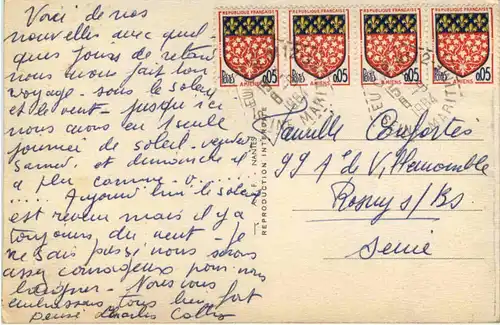 Voici de nos
nouvelles avec quel-
ques jours de retard
nous avons fait bon
voyage - sous le soleil
et le vent - jusqu'ici
nous avons eu seule
journée de soleil - vendredi
samedi et dimanche il
a plu comme
Aujourd'hui le soleil
est revenu mais il y a
toujours du vent - je
ne sais pas si nous serons
assez courageux pour nous
baigner - Nous vous
embrassons tous bien fort
Denise Charles
REPUBLIQUE FRANÇAISE
POSTES 0,05
AMIENS
REPUBLIQUE FRANÇAISE
POSTES 0,05
AMIENS
REPUBLIQUE FRANÇAISE
POSTES 0,05
AMIENS
REPUBLIQUE FRANÇAISE
POSTES 0,05
AMIENS
NANTES
REPRODUCTION INTERDITE
Famille
99 de Villemomble
Rosny s/Bs
Seine